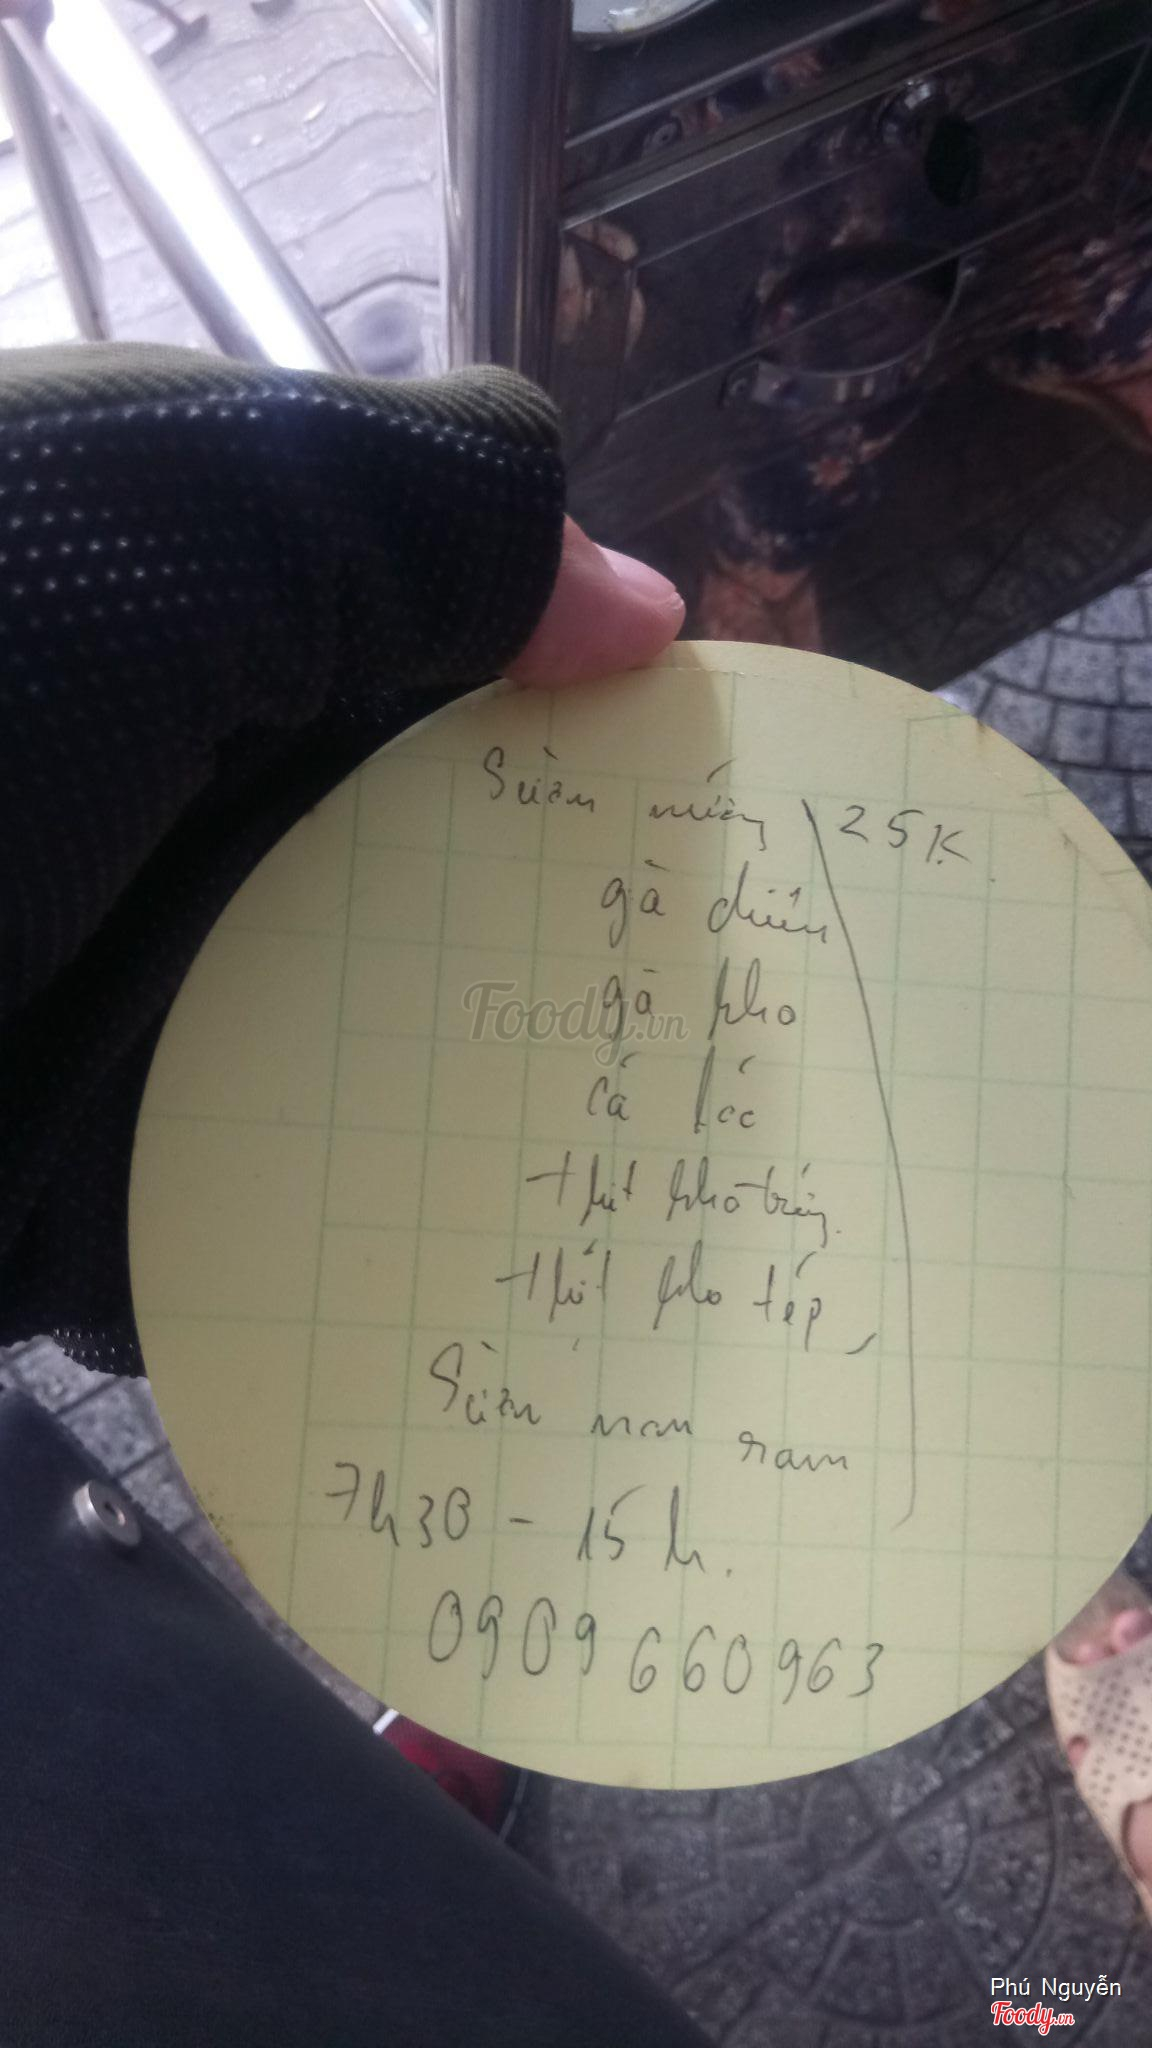 Sườn nướng 25K
gà chiên
gà kho
Foody.vn
cá lóc
thịt kho trứng
thịt kho tép
Sườn non ram
7h30 - 15h.
0909 660963
Phú Nguyễn
Foody.vn